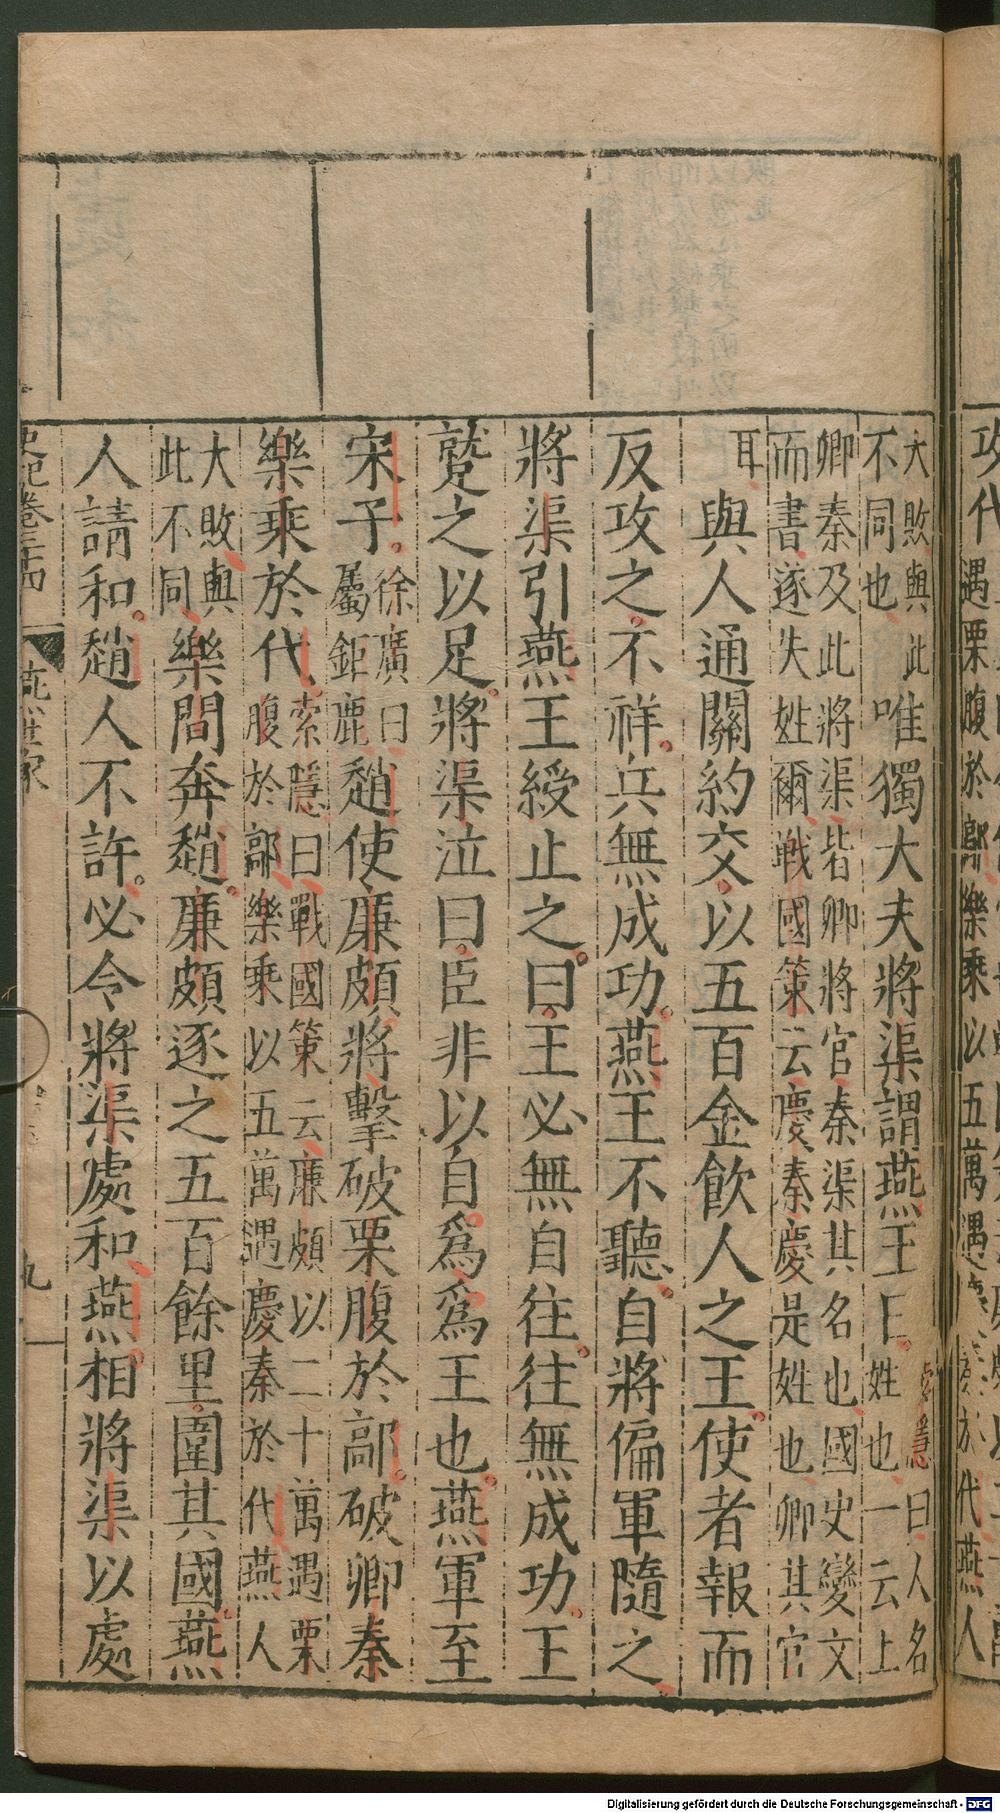 攻代遇栗腹於鄗樂乘以五萬遇慶秦於代燕人
大敗與此不同也唯獨大夫將渠謂燕王曰索隱曰人名姓也一云上
卿秦及此將渠皆卿將官秦渠其名也國史變文
而書遂失姓爾戰國策云慶秦慶是姓也卿其官
耳與人通關約交以五百金飲人之王使者報而
反攻之不祥兵無成功燕王不聽自將偏軍隨之
將渠引燕王綬止之曰王必無自往往無成功王
蹵之以足將渠泣曰臣非以自爲爲王也燕軍至
宋子徐廣曰屬鉅鹿趙使廉頗將擊破栗腹於鄗破卿秦
樂乘於代索隱曰戰國策云廉頗以二十萬遇栗
腹於鄗樂乘以五萬遇慶秦於代燕人
大敗與此不同樂間奔趙廉頗逐之五百餘里圍其國燕
人請和趙人不許必令將渠處和燕相將渠以處
史記卷三十四 燕世家 九
Digitalisierung gefördert durch die Deutsche Forschungsgemeinschaft - DFG